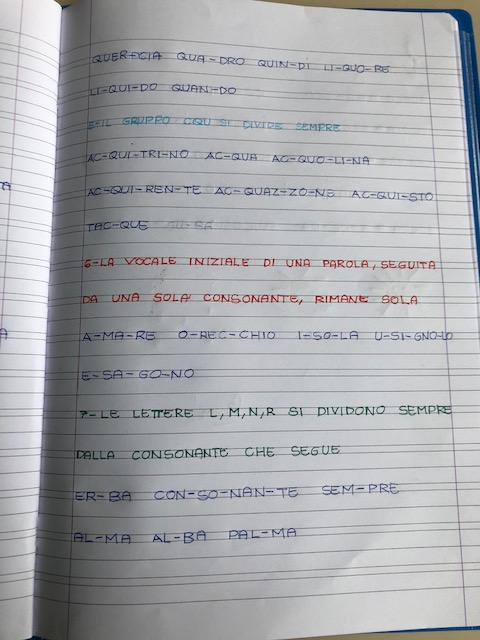 QUER-CIA QUA-DRO QUIN-DI LI-QUO-RE
LI-QUI-DO QUAN-DO
5-IL GRUPPO CQU SI DIVIDE SEMPRE
AC-QUI-TRI-NO AC-QUA AC-QUO-LI-NA
AC-QUI-REN-TE AC-QUAZ-ZO-NE AC-QUI-STO
TAC-QUE
6-LA VOCALE INIZIALE DI UNA PAROLA, SEGUITA
DA UNA SOLA CONSONANTE, RIMANE SOLA
A-MA-RE O-REC-CHIO I-SO-LA U-SI-GNO-LO
E-SA-GO-NO
7-LE LETTERE L,M,N,R SI DIVIDONO SEMPRE
DALLA CONSONANTE CHE SEGUE
ER-BA CON-SO-NAN-TE SEM-PRE
AL-MA AL-BA PAL-MA